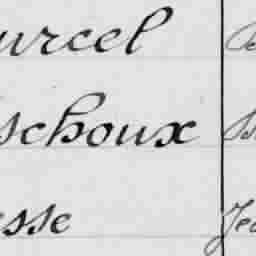 urcel
schoux
esse Jea